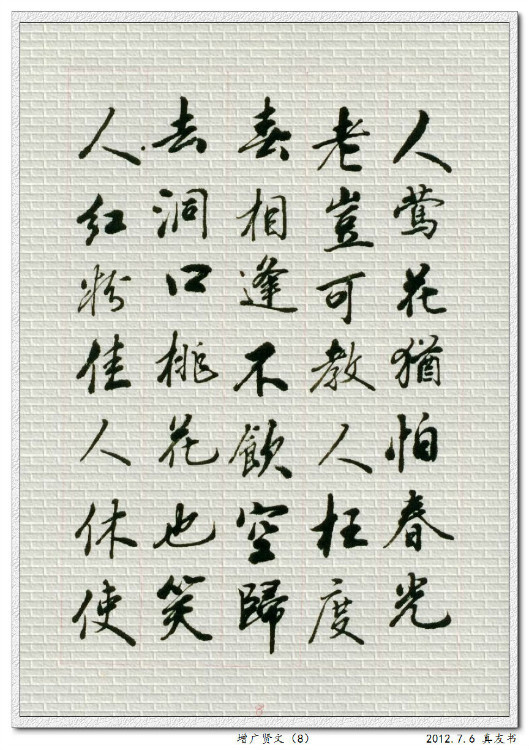 人莺花猶怕春光
老豈可教人枉度
春相逢不飲空歸
去洞口桃花也笑
人紅粉佳人休使
8
增广贤文（8）
2012.7.6 真友书